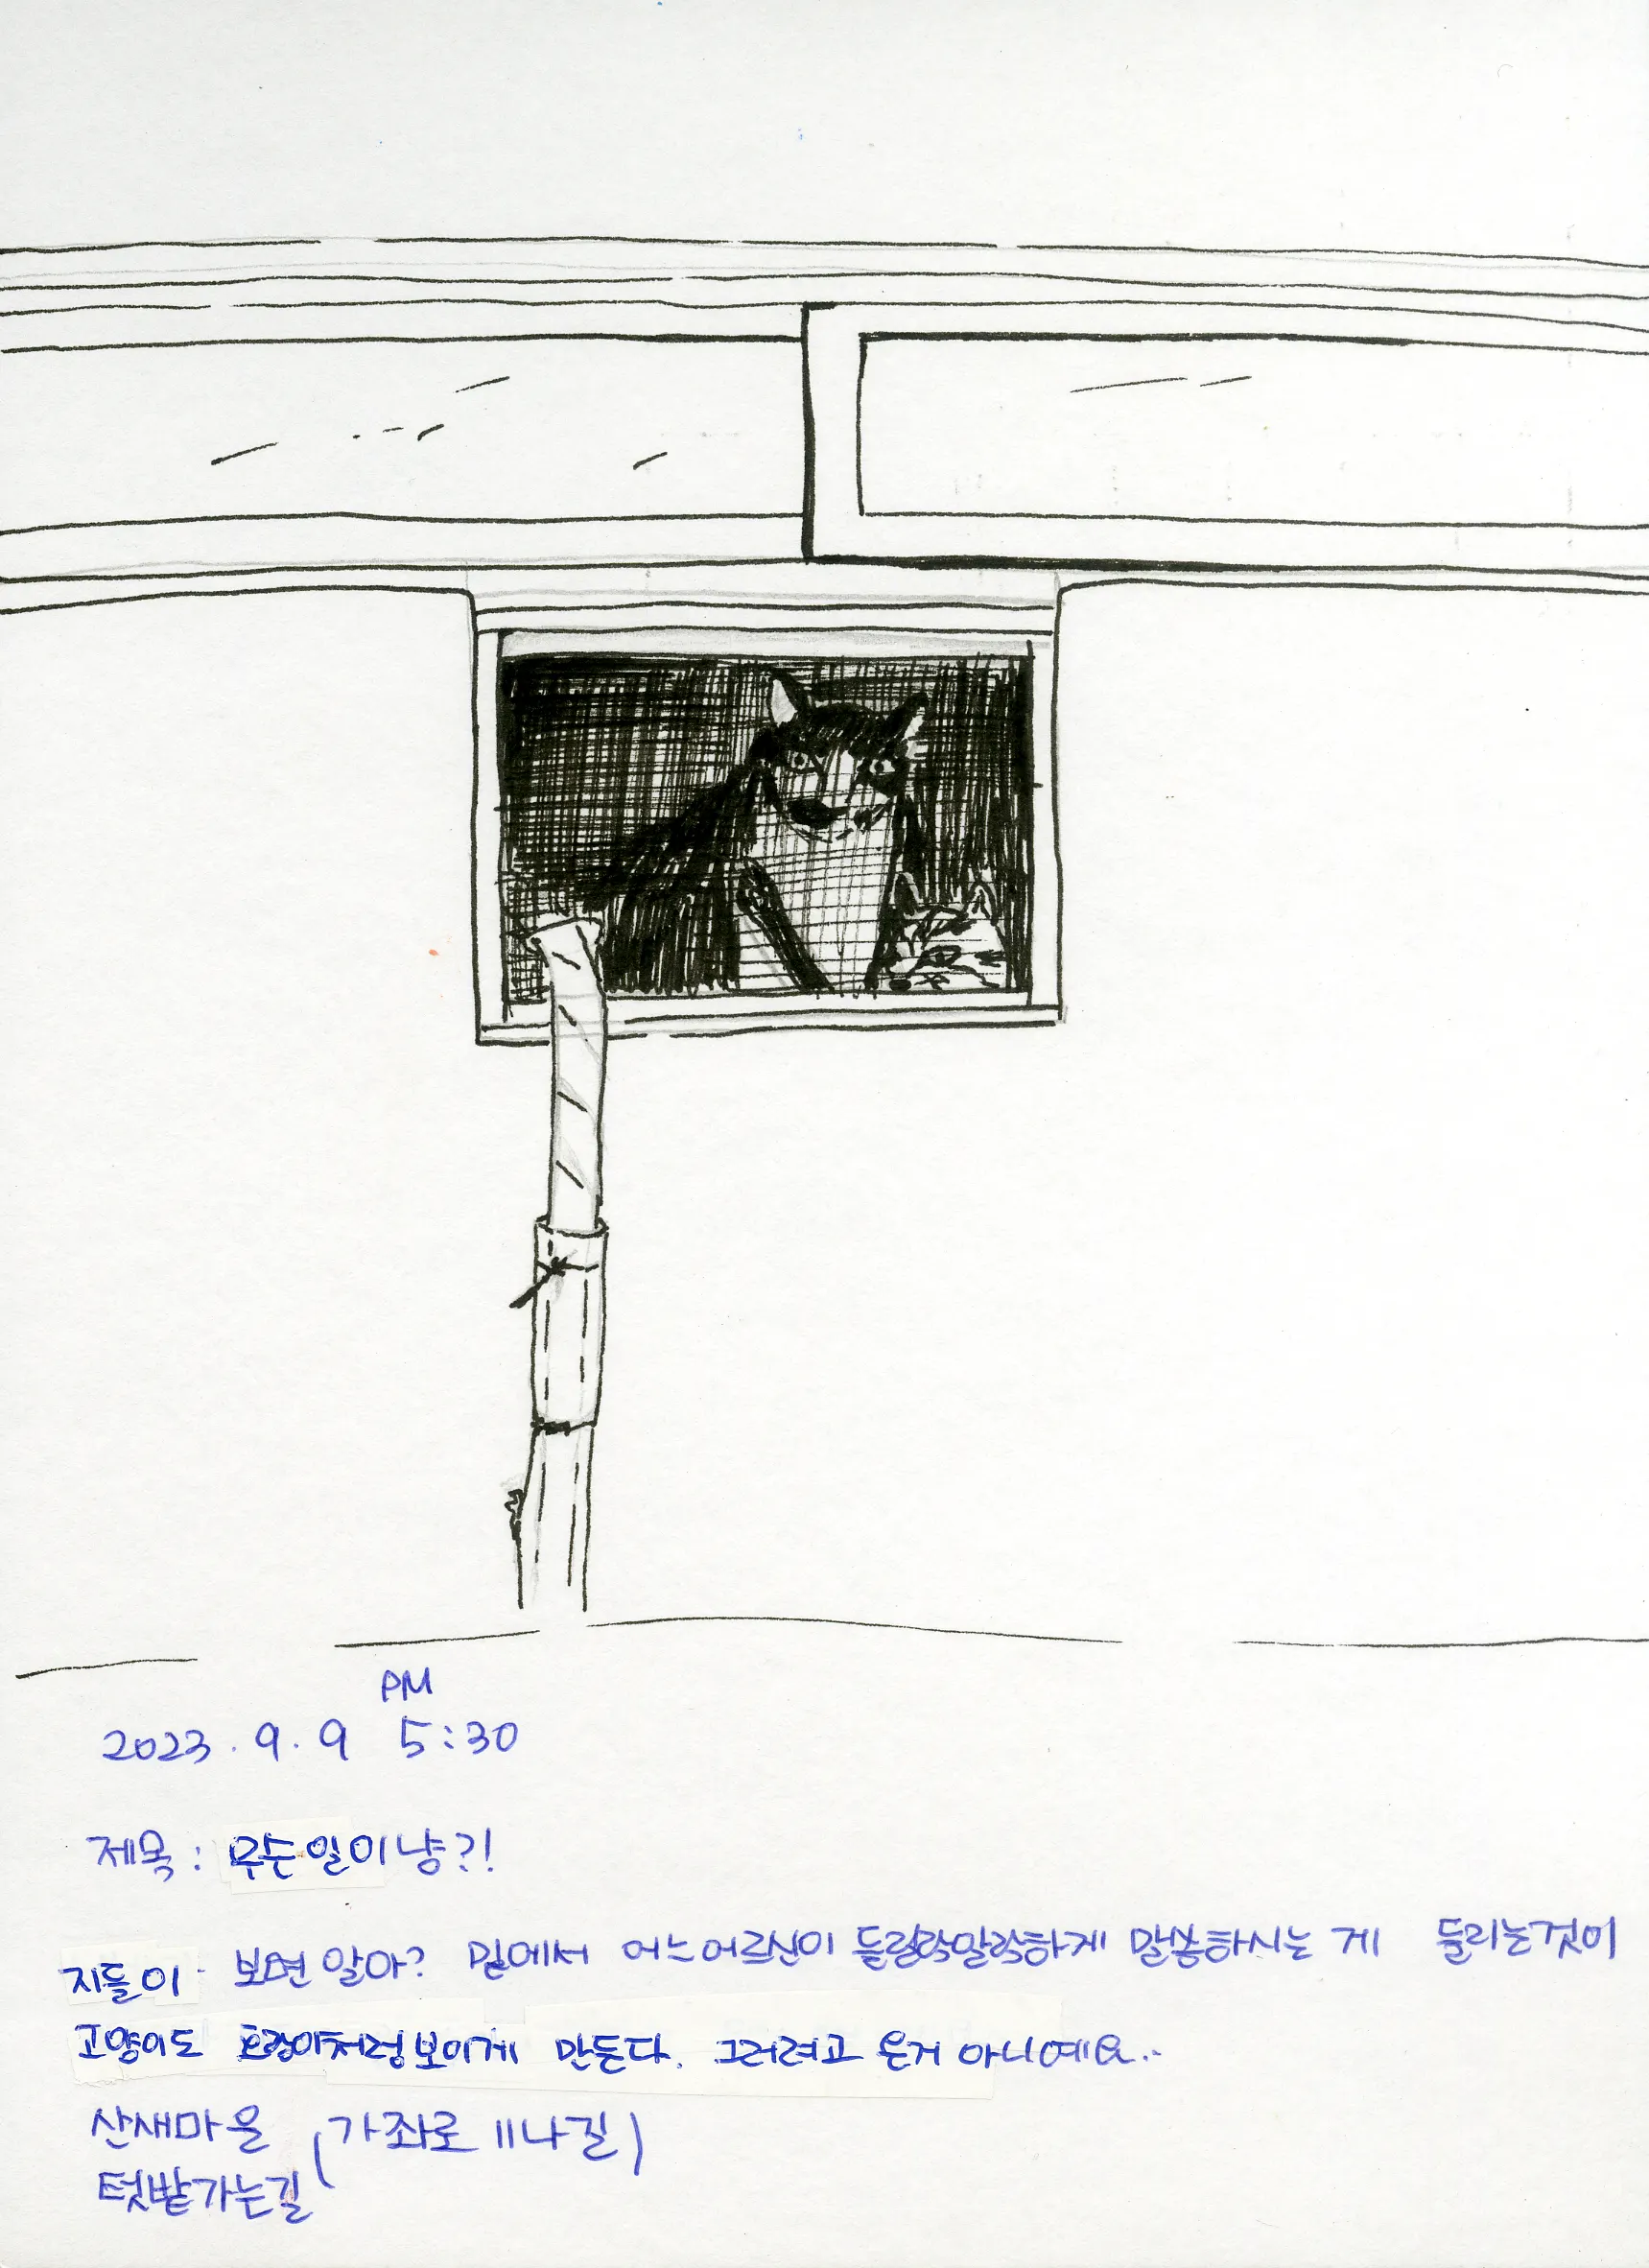 PM
2023. 9. 9 5:30
제목 : 무슨일이냥?!
지들이 보면 알아? 밑에서 어느어르신이 들릴락말락하게 말씀하시는 게 들리는것이
고양이도 호랑이처럼 보이게 만든다. 그러려고 온거 아니예요..
산새마을 (가좌로 11나길)
텃밭가는길